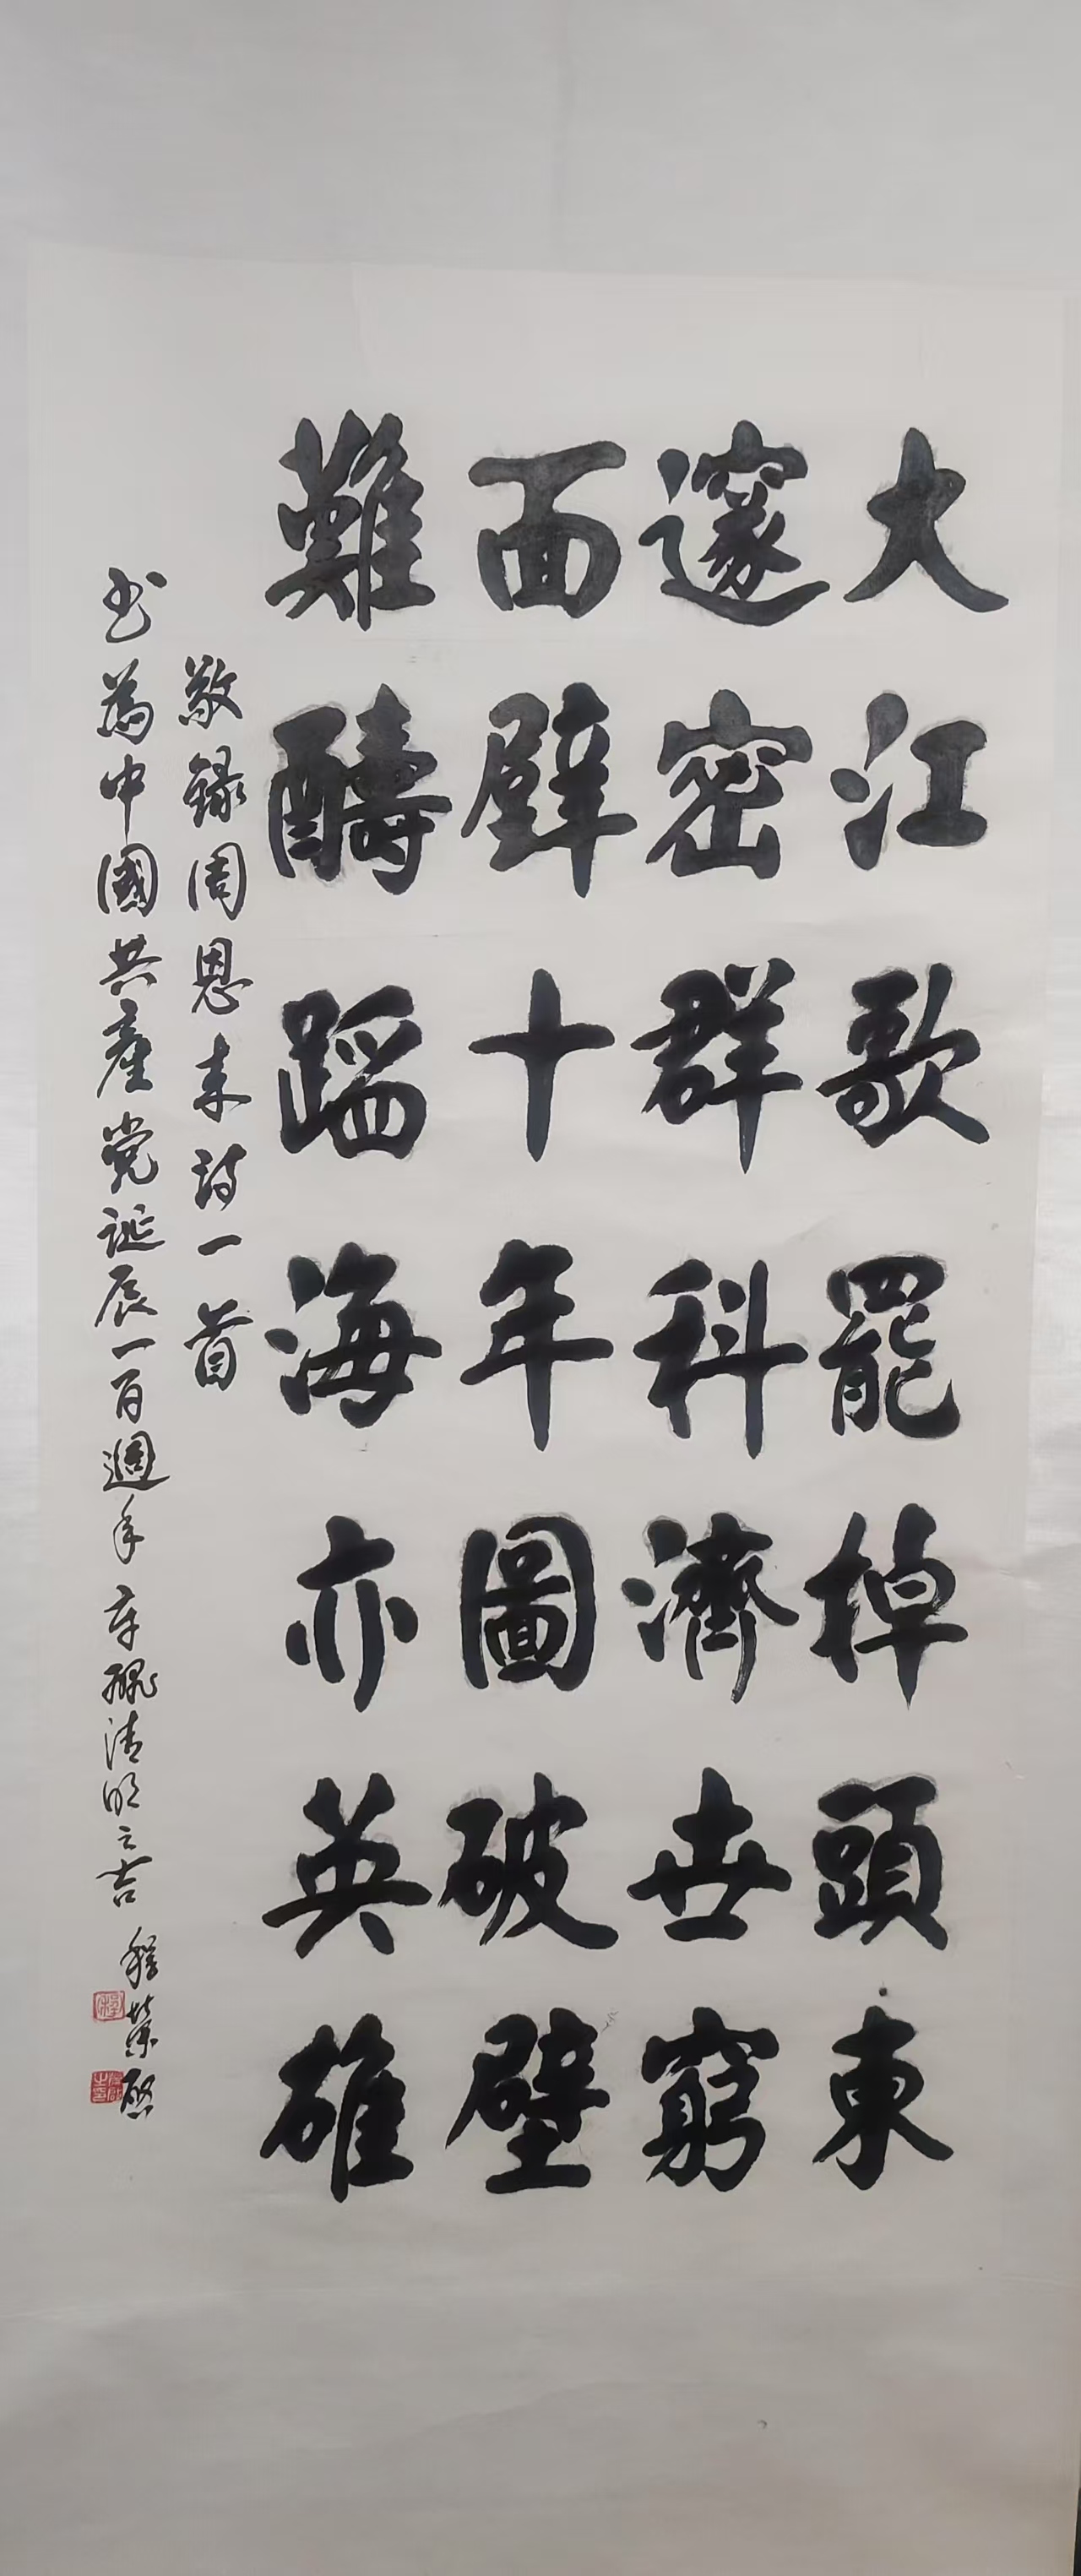 大江歌罷掉頭東
邃密群科濟世窮
面壁十年圖破壁
難酬蹈海亦英雄
敬錄周恩来詩一首
书為中國共產党誕辰一百週年辛醜清明之吉